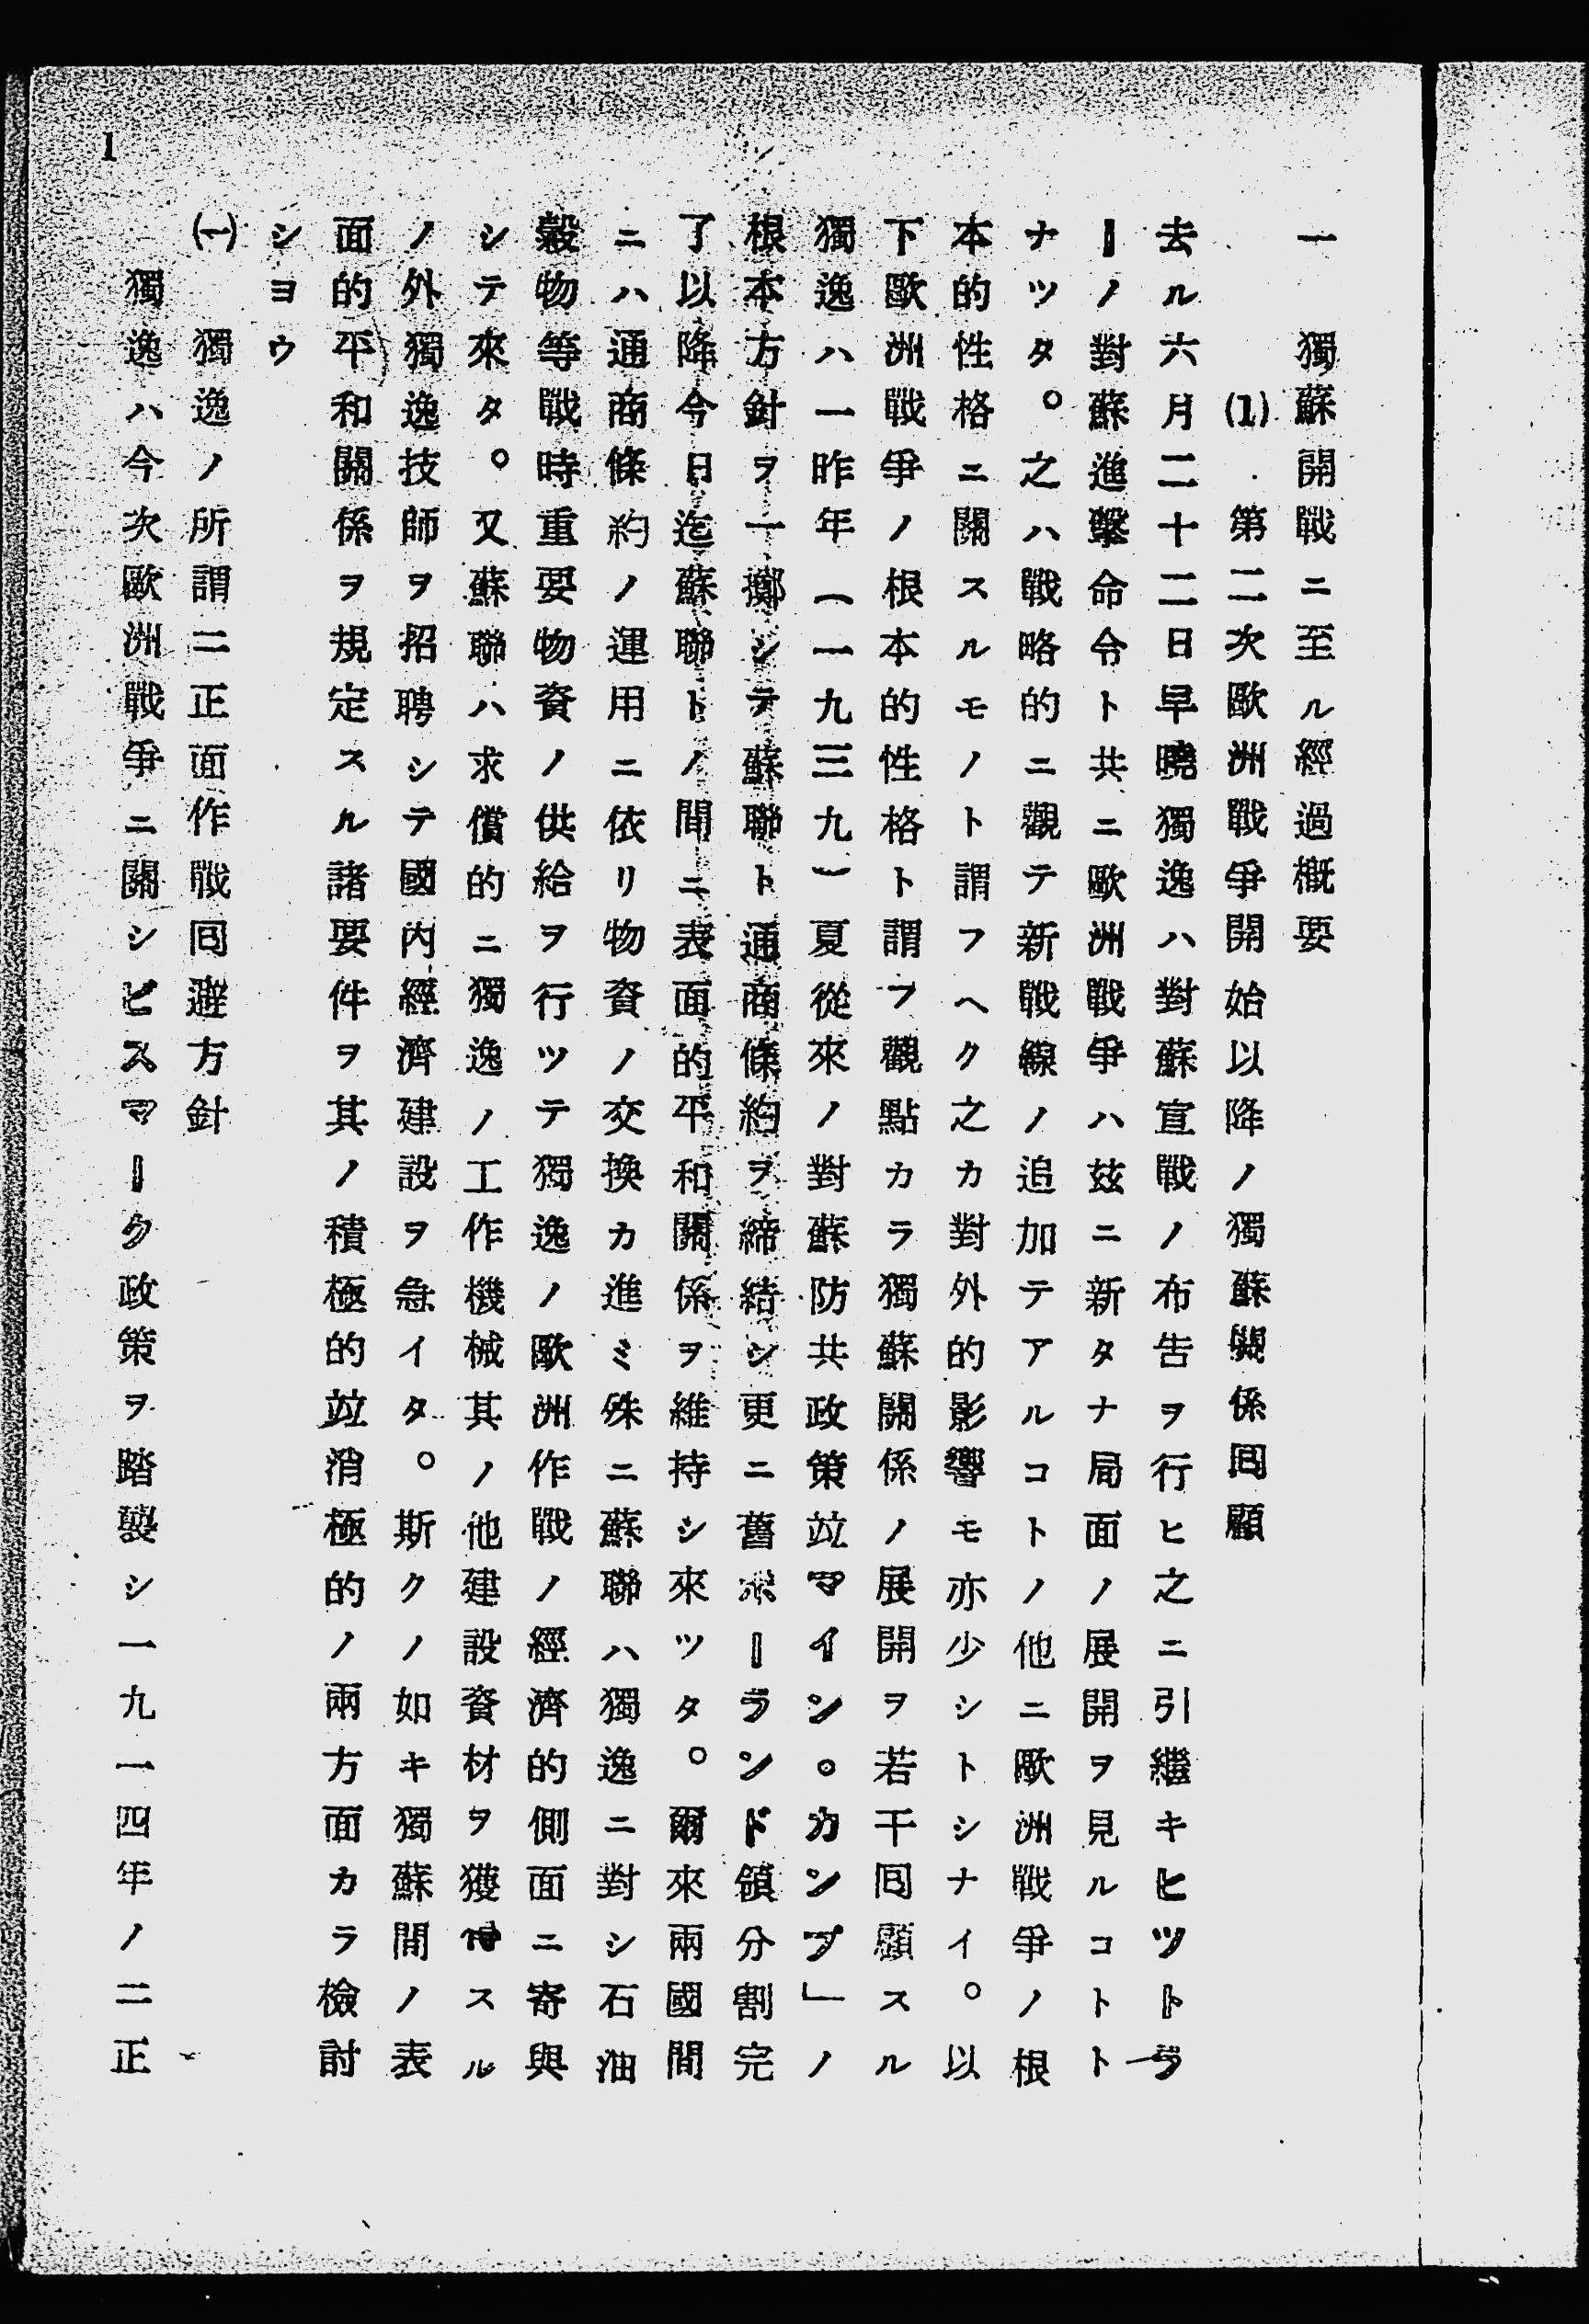 一　獨蘇開戰ニ至ル經過槪要
(1)　第二次歐洲戰爭開始以降ノ獨蘇關係囘顧
去ル六月二十二日早曉獨逸ハ對蘇宣戰ノ布告ヲ行ヒ之ニ引繼キヒツトラ
ーノ對蘇進擊命令ト共ニ歐洲戰爭ハ玆ニ新タナ局面ノ展開ヲ見ルコトト
ナツタ。之ハ戰略的ニ觀テ新戰線ノ追加テアルコトノ他ニ歐洲戰爭ノ根
本的性格ニ關スルモノト謂フヘク之カ對外的影響モ亦少シトシナイ。以
下歐洲戰爭ノ根本的性格ト謂フ觀點カラ獨蘇關係ノ展開ヲ若干囘顧スル
獨逸ハ一昨年（一九三九）夏從來ノ對蘇防共政策竝マイン。カンプ」ノ
根本方針ヲ一擲シテ蘇聯ト通商條約ヲ締結シ更ニ舊ポーランド領分割完
了以降今日迄蘇聯トノ間ニ表面的平和關係ヲ維持シ來ツタ。爾來兩國間
ニハ通商條約ノ運用ニ依リ物資ノ交換カ進ミ殊ニ蘇聯ハ獨逸ニ對シ石油
穀物等戰時重要物資ノ供給ヲ行ツテ獨逸ノ歐洲作戰ノ經濟的側面ニ寄與
シテ來タ。又蘇聯ハ求償的ニ獨逸ノ工作機械其ノ他建設資材ヲ獲得スル
ノ外獨逸技師ヲ招聘シテ國內經濟建設ヲ急イタ。斯クノ如キ獨蘇間ノ表
面的平和關係ヲ規定スル諸要件ヲ其ノ積極的竝消極的ノ兩方面カラ檢討
シヨウ
(一)　獨逸ノ所謂二正面作戰囘避方針
獨逸ハ今次歐洲戰爭ニ關シビスマーク政策ヲ踏襲シ一九一四年ノ二正
1